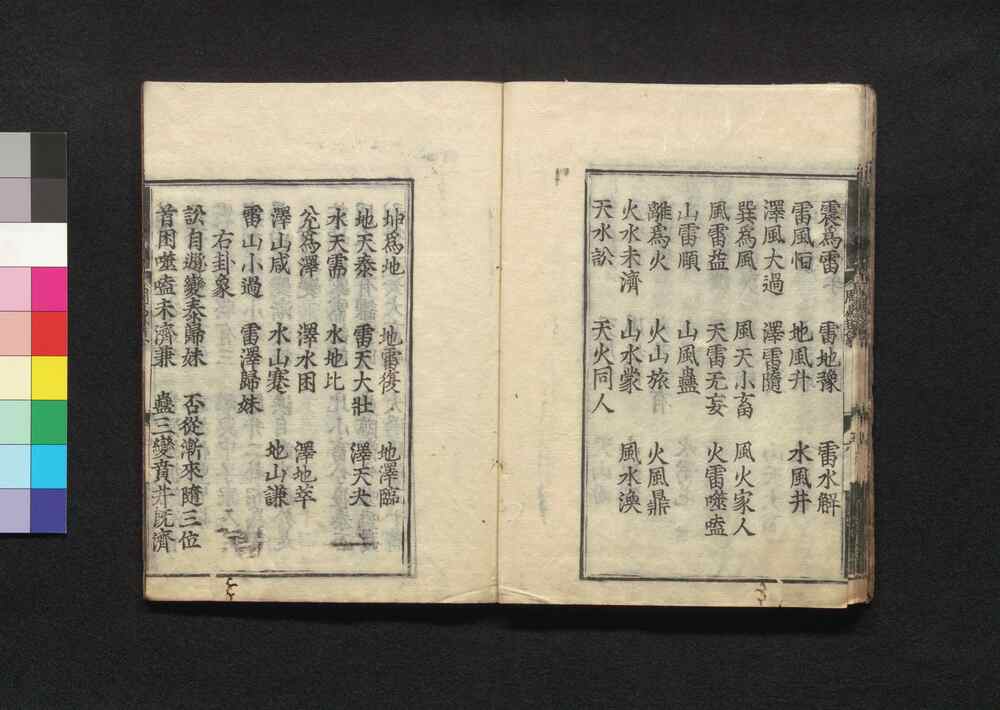 震爲雷 雷地豫 雷水解
雷風恒 地風升 水風井
澤風大過 澤雷隨
巽爲風 風天小畜 風火家人
風雷益 天雷无妄 火雷噬嗑
山雷頤 山風蠱
離爲火 火山旅 火風鼎
火水未濟 山水蒙 風水渙
天水訟 天火同人
坤爲地 地雷復 地澤臨
地天泰 雷天大壯 澤天夬
水天需 水地比
兌爲澤 澤水困 澤地萃
澤山咸 水山蹇 地山謙
雷山小過 雷澤歸妹
右卦象
訟自遯變泰歸妹 否從漸來隨三位
首困噬嗑未濟兼 蠱三變賁井旣濟